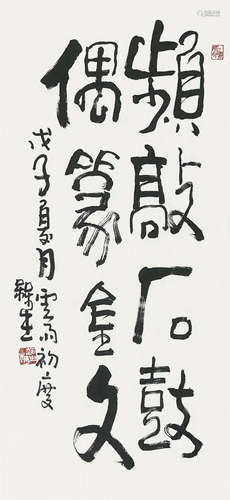 频敲石鼓
偶篆金文
戊子夏月雲雨初度